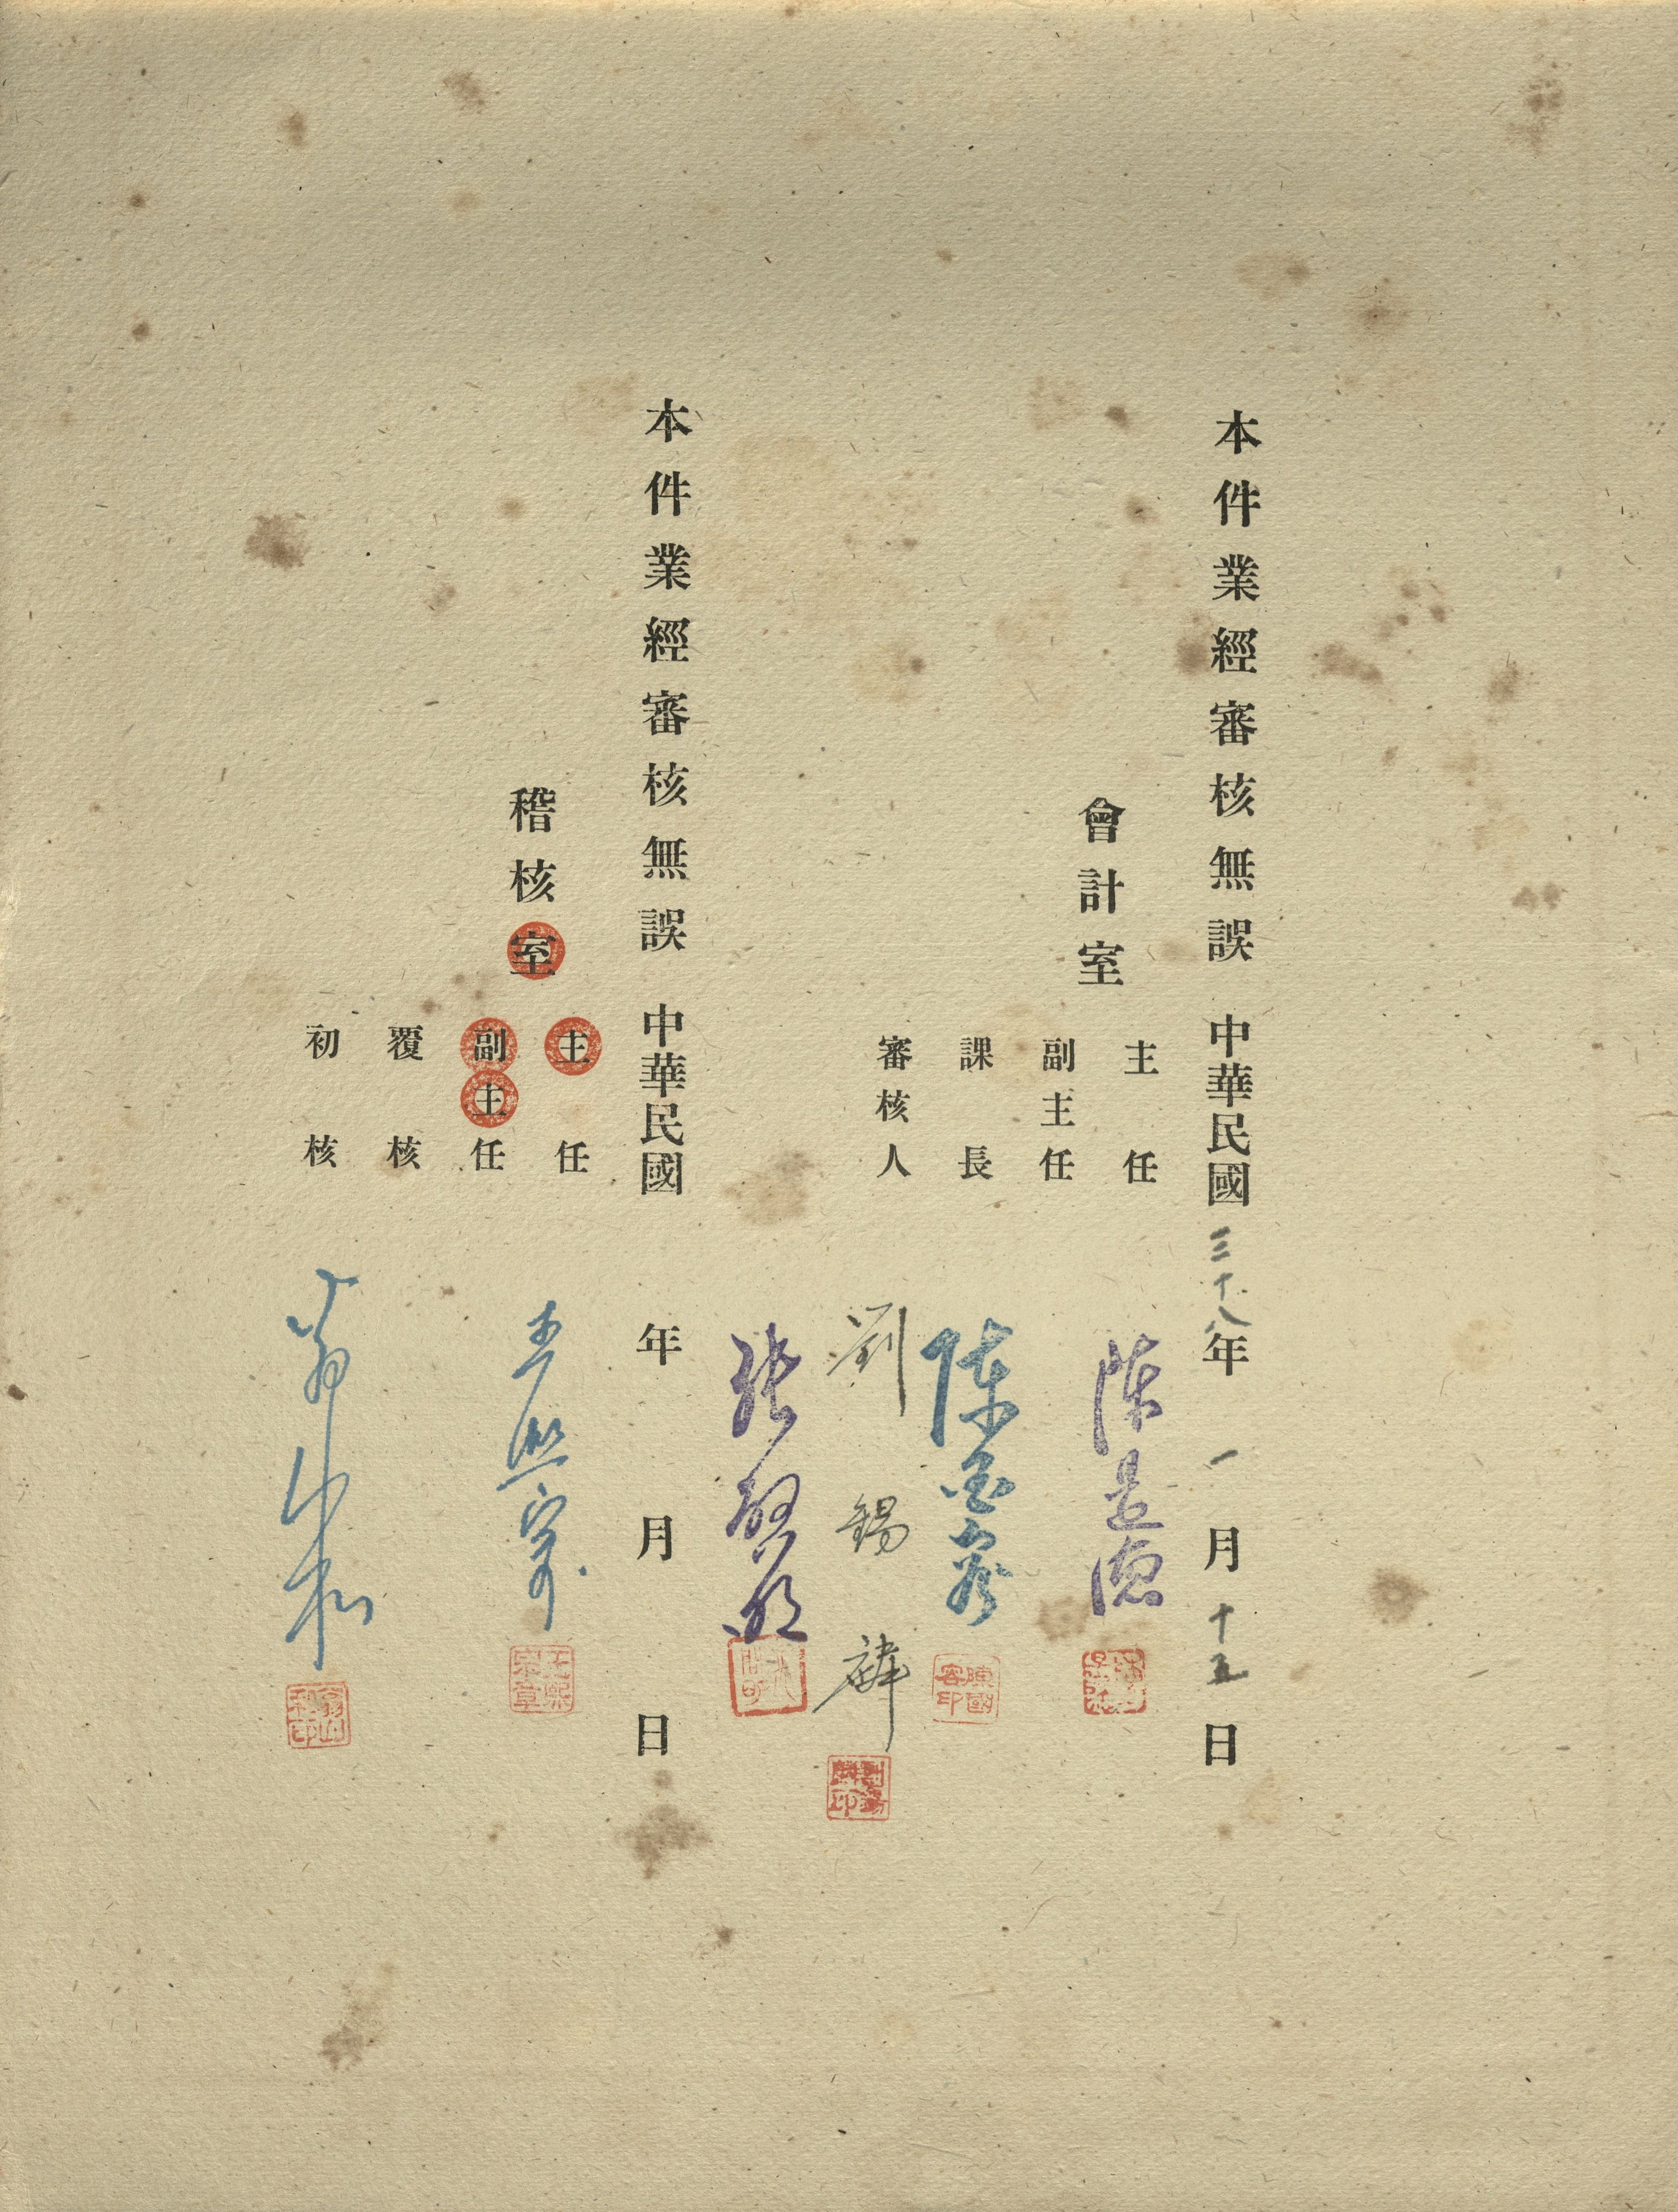 本件業經審核無誤 中華民國三十八年一月十五日
會計室
主任 陳
副主任
課長 陳國容
陳國容印
審核人 劉錫麟
本件業經審核無誤 中華民國 年 月 日
稽核室
主任
副主任 王熙宗
王熙宗章
覆核
初核 翁